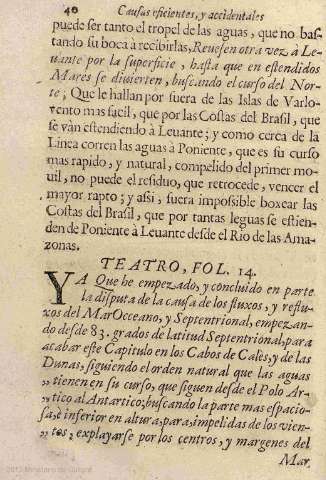 40 Causas eficientes, y accidentales
puede ser tanto el tropel de las aguas, que no bas-
tando su boca à recibirlas, Revesen otra vez à Le-
vante por la superficie, hasta que en estendidos
Mares se divierten, buscando el curso del Nor-
te; Que le hallan por fuera de las Islas de Varlo-
vento mas facil, que por las Costas del Brasil, que
se vàn estendiendo à Levante; y como cerca de la
Linea corren las aguas à Poniente, que es su curso
mas rapido, y natural, compelido del primer mo-
uil, no puede el residuo, que retrocede, vencer el
mayor rapto; y assi, fuera impossible boxear las
Costas del Brasil, que por tantas leguas se estien-
den de Poniente à Levante desde el Rio de las Ama-
zonas.
TEATRO, FOL. 14.
YA Que he empezado, y concluido en parte
la disputa de la causa de los fluxos, y reflu-
xos del Mar Occeano, y Septentrional, empezan-
do desde 83. grados de latitud Septentrional, para
acabar este Capitulo en los Cabos de Cales, y de las
Dunas, siguiendo el orden natural que las aguas
„ tienen en su curso, que siguen desde el Polo Ar-
„ tico al Antartico; buscando la parte mas espacio-
„ sa, è inferior en altura, para, impelidas de los vien-
„ tos, explayarse por los centros, y margenes del
Mar.